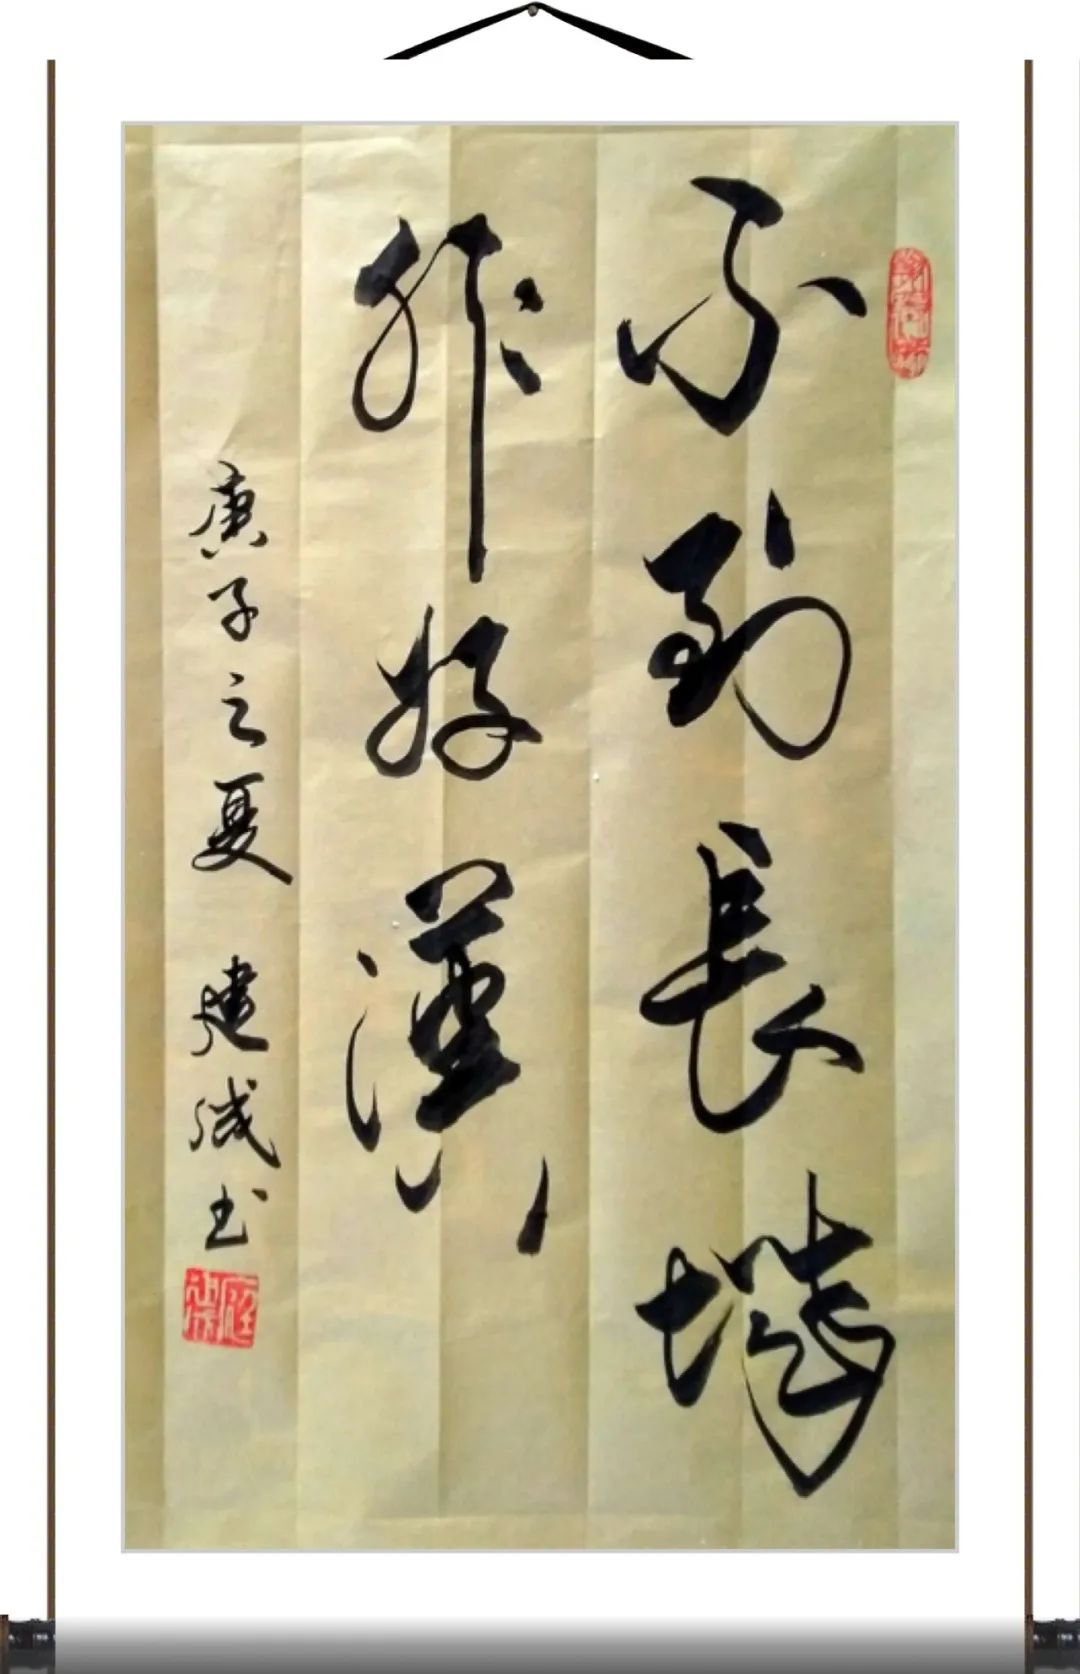 不到長城
非好漢
庚子之夏 建成书